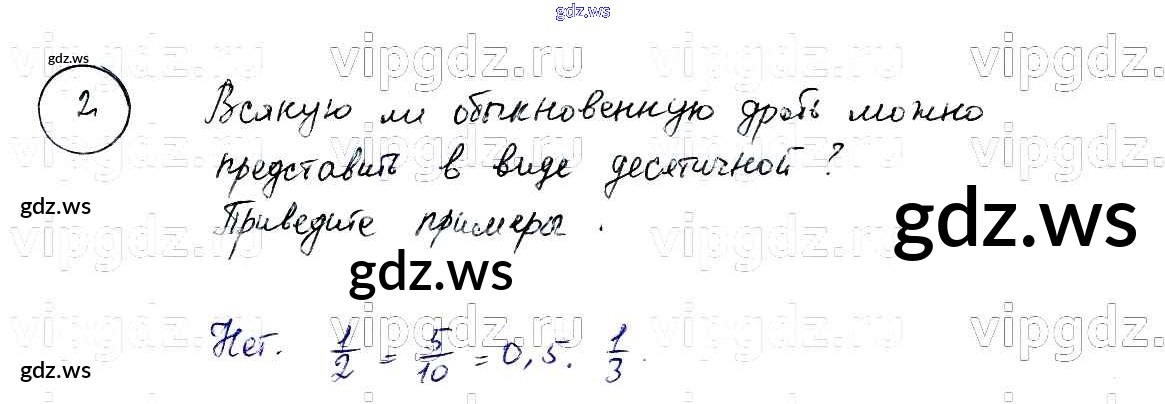 gdz.ws
vipgdz.ru vipgdz.ru vipgdz.ru vipgdz.ru
gdz.ws
2 Всякую ли обыкновенную дробь можно
vipgdz.ru vipgdz.ru vipgdz.ru vipgdz.ru
представить в виде десятичной?
gdz.ws gdz.ws
Приведите примеры.
vipgdz.ru vipgdz.ru vipgdz.ru vipgdz.ru
gdz.ws
vipgdz.ru vipgdz.ru vipgdz.ru vipgdz.ru
Нет. 1/2 = 5/10 = 0,5. 1/3.
gdz.ws